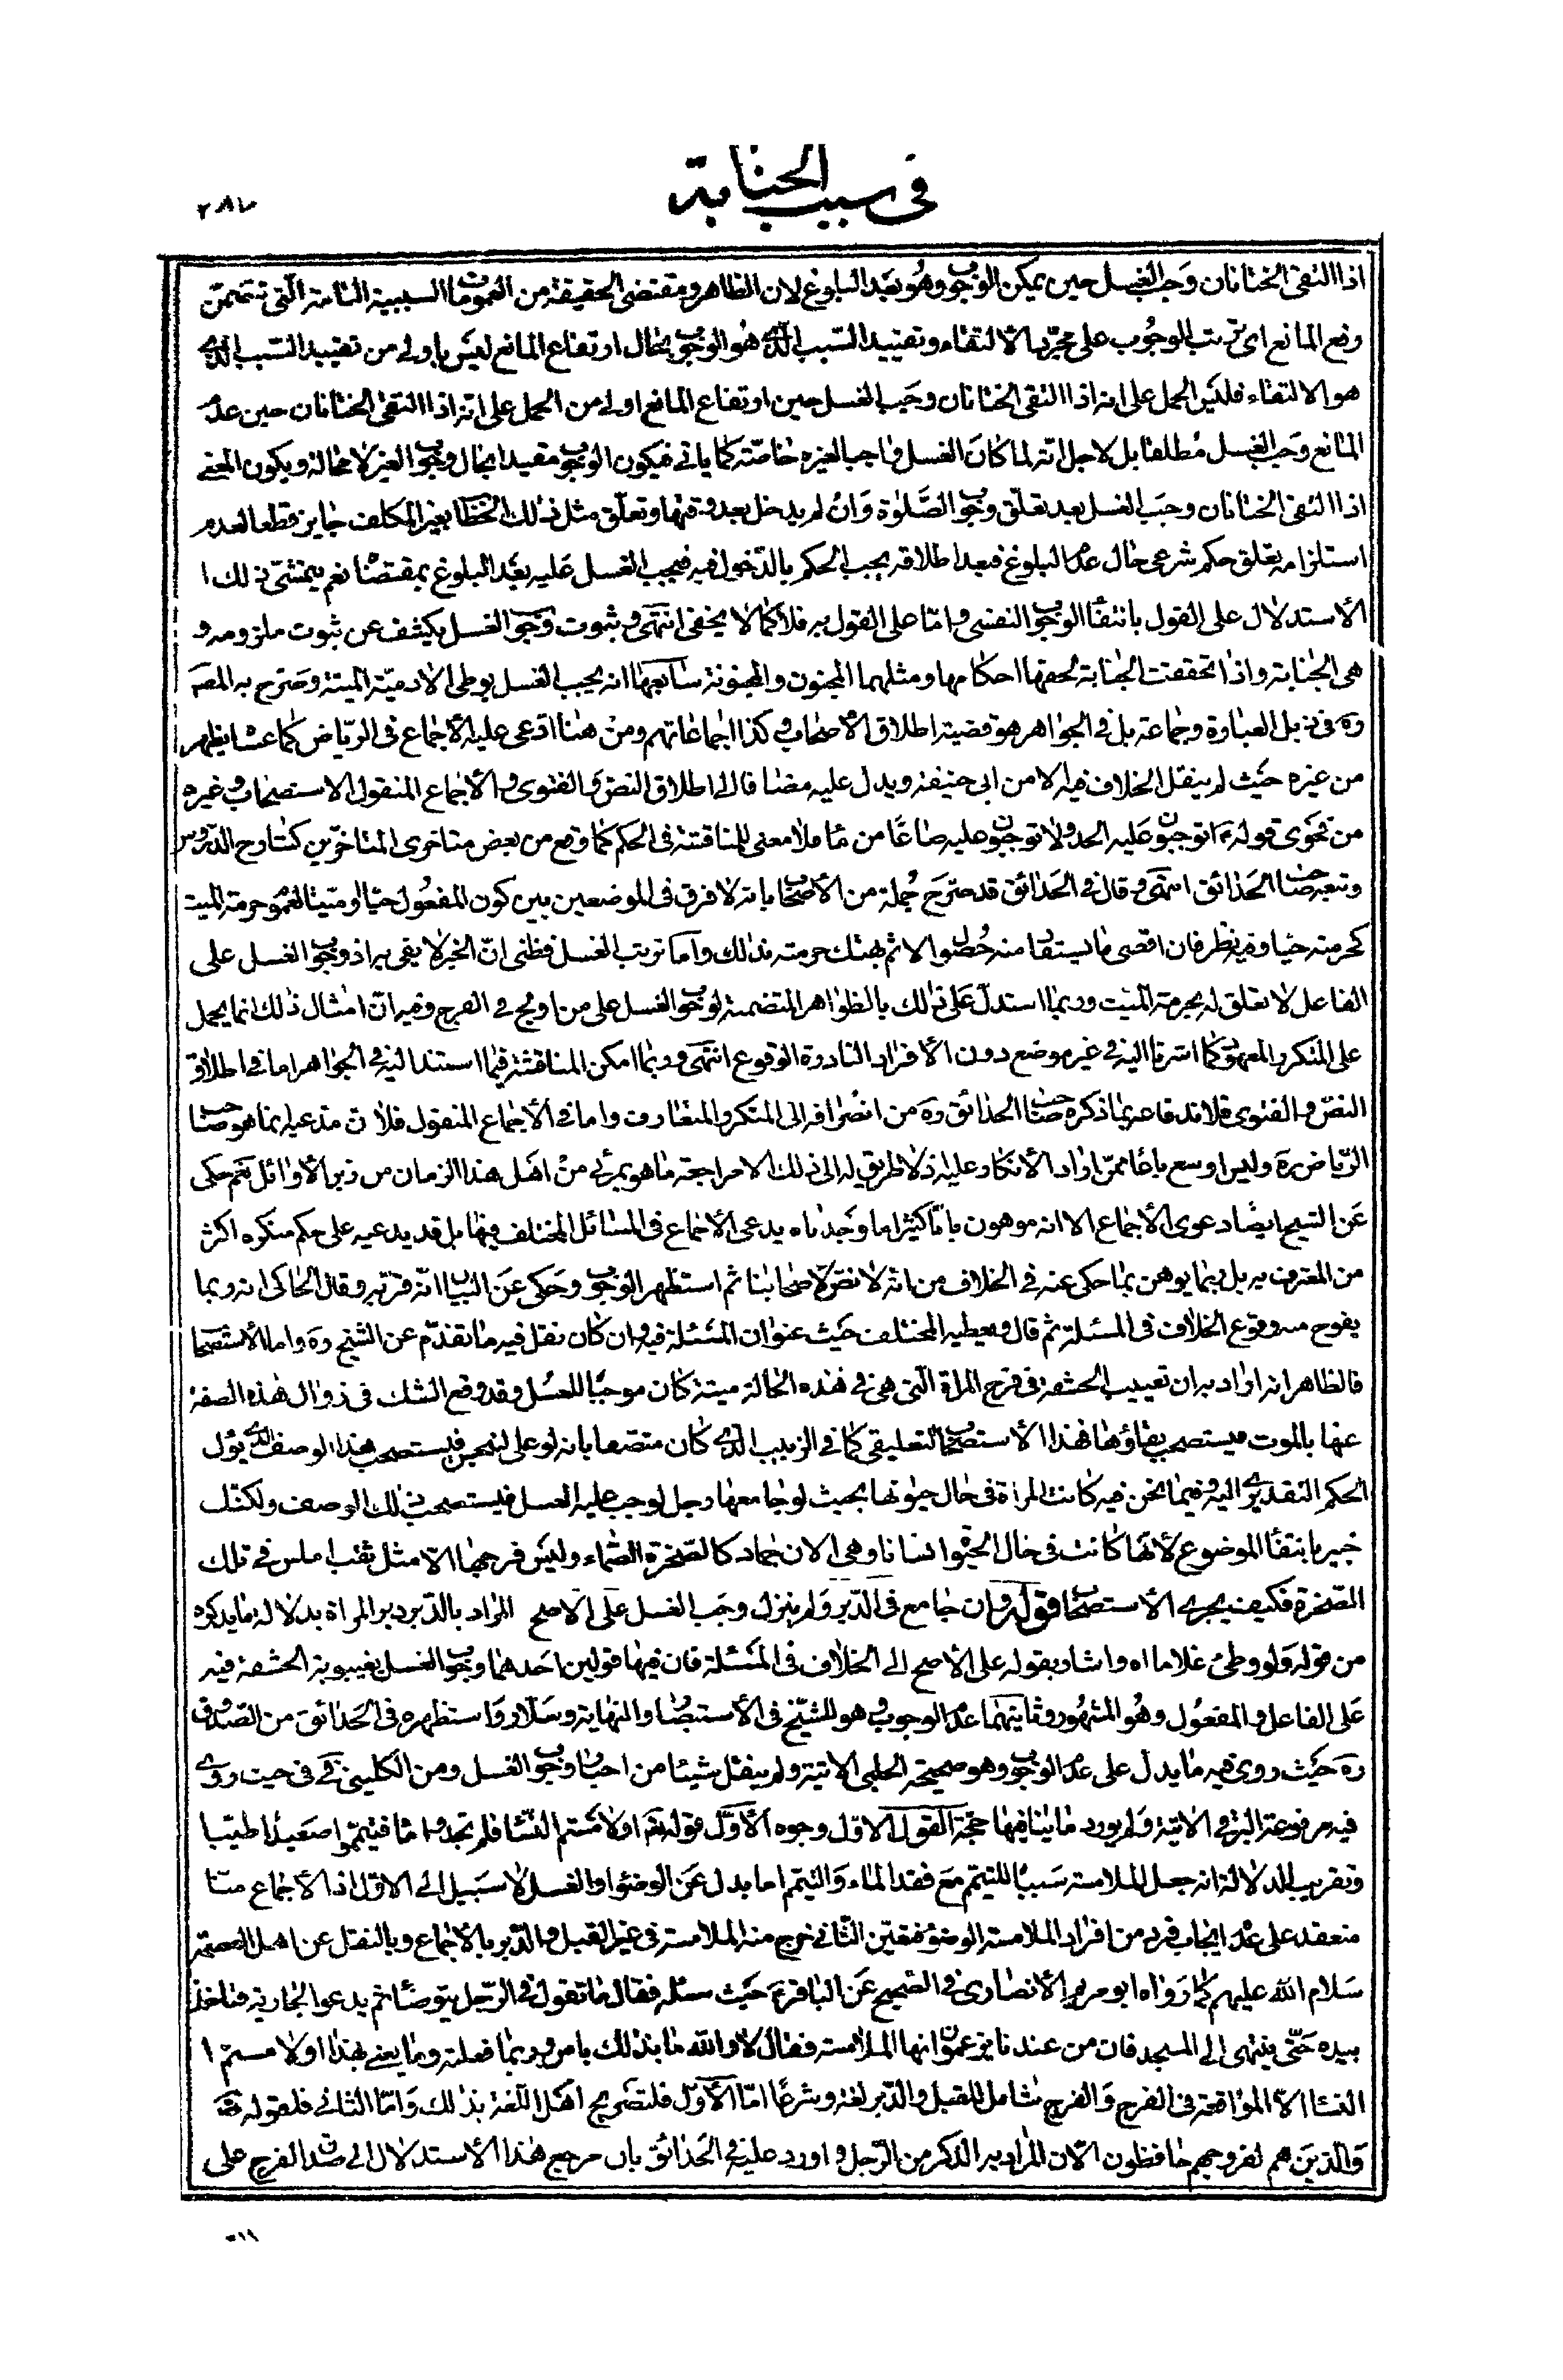 في سبب الجنابة
٢٨٧
اذا التقى الختانان وجب الغسل حين يمكن الوجوب وهو بعد البلوغ لان الظاهر ومقتضى الحقيقة من العمومات السببية التامة التي تتضمن
رفع المانع اى ترتب الوجوب على مجرد الالتقاء وتقييد السبب الذى هو الوجوب بحال ارتفاع المانع ليس باولى من تقييد السبب الذى
هو الالتقاء فليس الحمل على انه اذا التقى الختانان وجب الغسل حين ارتفاع المانع اولى من الحمل على انه اذا التقى الختانان حين عدم
المانع وجب الغسل مطلقا بل لاجل انه لما كان الغسل واجبا لغيره خاصة كما ياتى فيكون الوجوب مقيدا بحال وجوب الغير لا محالة ويكون المعنى
اذا التقى الختانان وجب الغسل بعد تعلق وجوب الصلوة وان لم يدخل بعد وقتها وتعلق مثل ذلك الخطاب بغير المكلف جايز قطعا لعدم
استلزامه تعلق حكم شرعى حال عدم البلوغ فبعد اطلاقه يجب الحكم بالدخول فيه فيجب الغسل عليه بعد البلوغ بمقتضاه نعم يتمشى ذلك ا
الاستدلال على القول بانتفاء الوجوب النفسى واما على القول به فلا كما لا يخفى انتهى وثبوت وجوب الغسل يكشف عن ثبوت ملزومه و
هى الجنابة واذا تحققت الجنابة لحقها احكامها ومثلهما المجنون والمجنونة سابعها انه يجب الغسل بوطى الادمية الميتة وصرح به المصنف
ره فى ذيل العبارة وجماعة بل فى الجواهر هو قضية اطلاق الاصحاب وكذا اجماعاتهم ومن هنا ادعى عليه الاجماع فى الرياض كما عساه يظهر
من غيره حيث لم ينقل الخلاف فيه الا من ابى حنيفة ويدل عليه مضافا الى اطلاق النص والفتوى والاجماع المنقول الاستصحاب وغيره
من فحوى قوله ع اتوجبون عليه الحد ولا توجبون عليه صاعا من ماء فلا معنى للمناقشة فى الحكم كما وقع من بعض متاخرى المتاخرين كشارح الدروس
وتبعه صاحب الحدائق انتهى وقال فى الحدائق قد صرح جملة من الاصحاب بانه لا فرق فى الموضعين بين كون المفعول حيا او ميتا لعموم حرمة الميت
كحرمته حيا وفيه نظر فان اقصى ما يستفاد منه حصول الاثم بهتك حرمته بذلك واما ترتب الغسل فظنى ان الخبر لا يفى به اذ وجوب الغسل على
الفاعل لا تعلق له بحرمة الميت وربما استدل على ذلك بالظواهر المتضمنة لوجوب الغسل على من اولج فى الفرج وفيه ان امثال ذلك انما يحمل
على المتكرر المعهود كما اشرنا اليه فى غير موضع دون الافراد النادرة الوقوع انتهى وربما امكن المناقشة فيما استند اليه فى الجواهر اما فى اطلاق
النص والفتوى فلاندفاعه بما ذكره صاحب الحدائق ره من انصرافه الى المتكرر المتعارف واما فى الاجماع المنقول فلان مدعيه انما هو صاحب
الرياض ره وليس اوسع باعا ممن اراد الانكار عليه اذ لا طريق له الى ذلك الا مراجعة ما هو بمرئى من اهل هذا الزمان من زبر الاوائل نعم حكى
عن الشيخ ايضا دعوى الاجماع الا انه موهون بانا كثيرا ما وجدناه يدعى الاجماع فى المسائل المختلف فيها بل قد يدعيه على حكم منكره اكثر
من المعترف به بل ربما يوهن بما حكى عنه فى الخلاف من انه لا نص لاصحابنا ثم استظهر الوجوب وحكى عن التبيان انه قربه وقال الحاكى انه ربما
يفوح منه وقوع الخلاف فى المسئلة ثم قال ويعطيه المختلف حيث عنوان المسئلة فيه وان كان نقل فيه ما تقدم عن الشيخ ره واما الاستصحاب
فالظاهر انه اراد به ان تغييب الحشفة فى فرج المراة التى هى فى هذه الحالة ميتة كان موجبا للغسل وقد وقع الشك فى زوال هذه الصفة
عنها بالموت فيستصحب بقاؤها فهذا الاستصحاب التعليقى كما فى الزبيب الذى كان متصفا بانه لو على لنجس فيستصحب هذا الوصف الذى يؤل
الحكم التقديرى اليه وفيما نحن فيه كانت المراة فى حال حيوتها بحيث لو جامعها رجل لوجب عليه الغسل فيستصحب ذلك الوصف ولكنك
خبير بانتفاء الموضوع لانها كانت فى حال الحيوة انسانا وهى الان جماد كالصخرة الصماء وليس فرجها الا مثل ثقب املس فى تلك
الصخرة فكيف يجرى الاستصحاب قوله وان جامع فى الدبر ولم ينزل وجب الغسل على الاصح المراد بالدبر دبر المراة بدلالة ما يذكره
من قوله ولو وطئ غلاما اه واشار بقوله على الاصح الى الخلاف فى المسئلة فان فيها قولين احدهما وجوب الغسل بغيبوبة الحشفة فيه
على الفاعل والمفعول وهو المشهور وثانيهما عدم الوجوب وهو للشيخ فى الاستبصار والنهاية وسلار واستظهره فى الحدائق من الصدوق
ره حيث روى فيه ما يدل على عدم الوجوب وهو صحيحة الحلبى الاتية ولم ينقل شيئا من اخبار وجوب الغسل ومن الكلينى ره فى فى حيث روى
فيه مرفوعة البرقى الاتية ولم يورد ما ينافيها حجة القول الاول وجوه الاول قوله تعالى او لامستم النساء فلم تجدوا ماء فتيمموا صعيدا طيبا
وتقريب الدلالة انه جعل الملامسة سببا للتيمم مع فقد الماء والتيمم اما بدل عن الوضوء او الغسل لا سبيل الى الاول اذ الاجماع منا
منعقد على عدم ايجاب فرد من افراد الملامسة الوضوء فتعين الثانى خرج منه الملامسة فى غير القبل والدبر بالاجماع وبالنقل عن اهل العصمة
سلام الله عليهم كما رواه ابو مريم الانصارى فى الصحيح عن الباقر ع حيث سئله فقال ما تقول فى الرجل يتوضا ثم يدعو الجارية فتاخذ
بيده حتى ينتهى الى المسجد فان من عندنا يزعمون انها الملامسة فقال لا والله ما بذلك باس وربما فعلته وما يعنى بهذا او لامستم ا
النساء الا المواقعة فى الفرج والفرج شامل للقبل والدبر لغة وشرعا اما الاول فلتصريح اهل اللغة بذلك واما الثانى فلقوله تعالى
والذين هم لفروجهم حافظون الان المراد به الذكر من الرجل واورد عليه فى الحدائق بان مرجع هذا الاستدلال الى صدق الفرج على